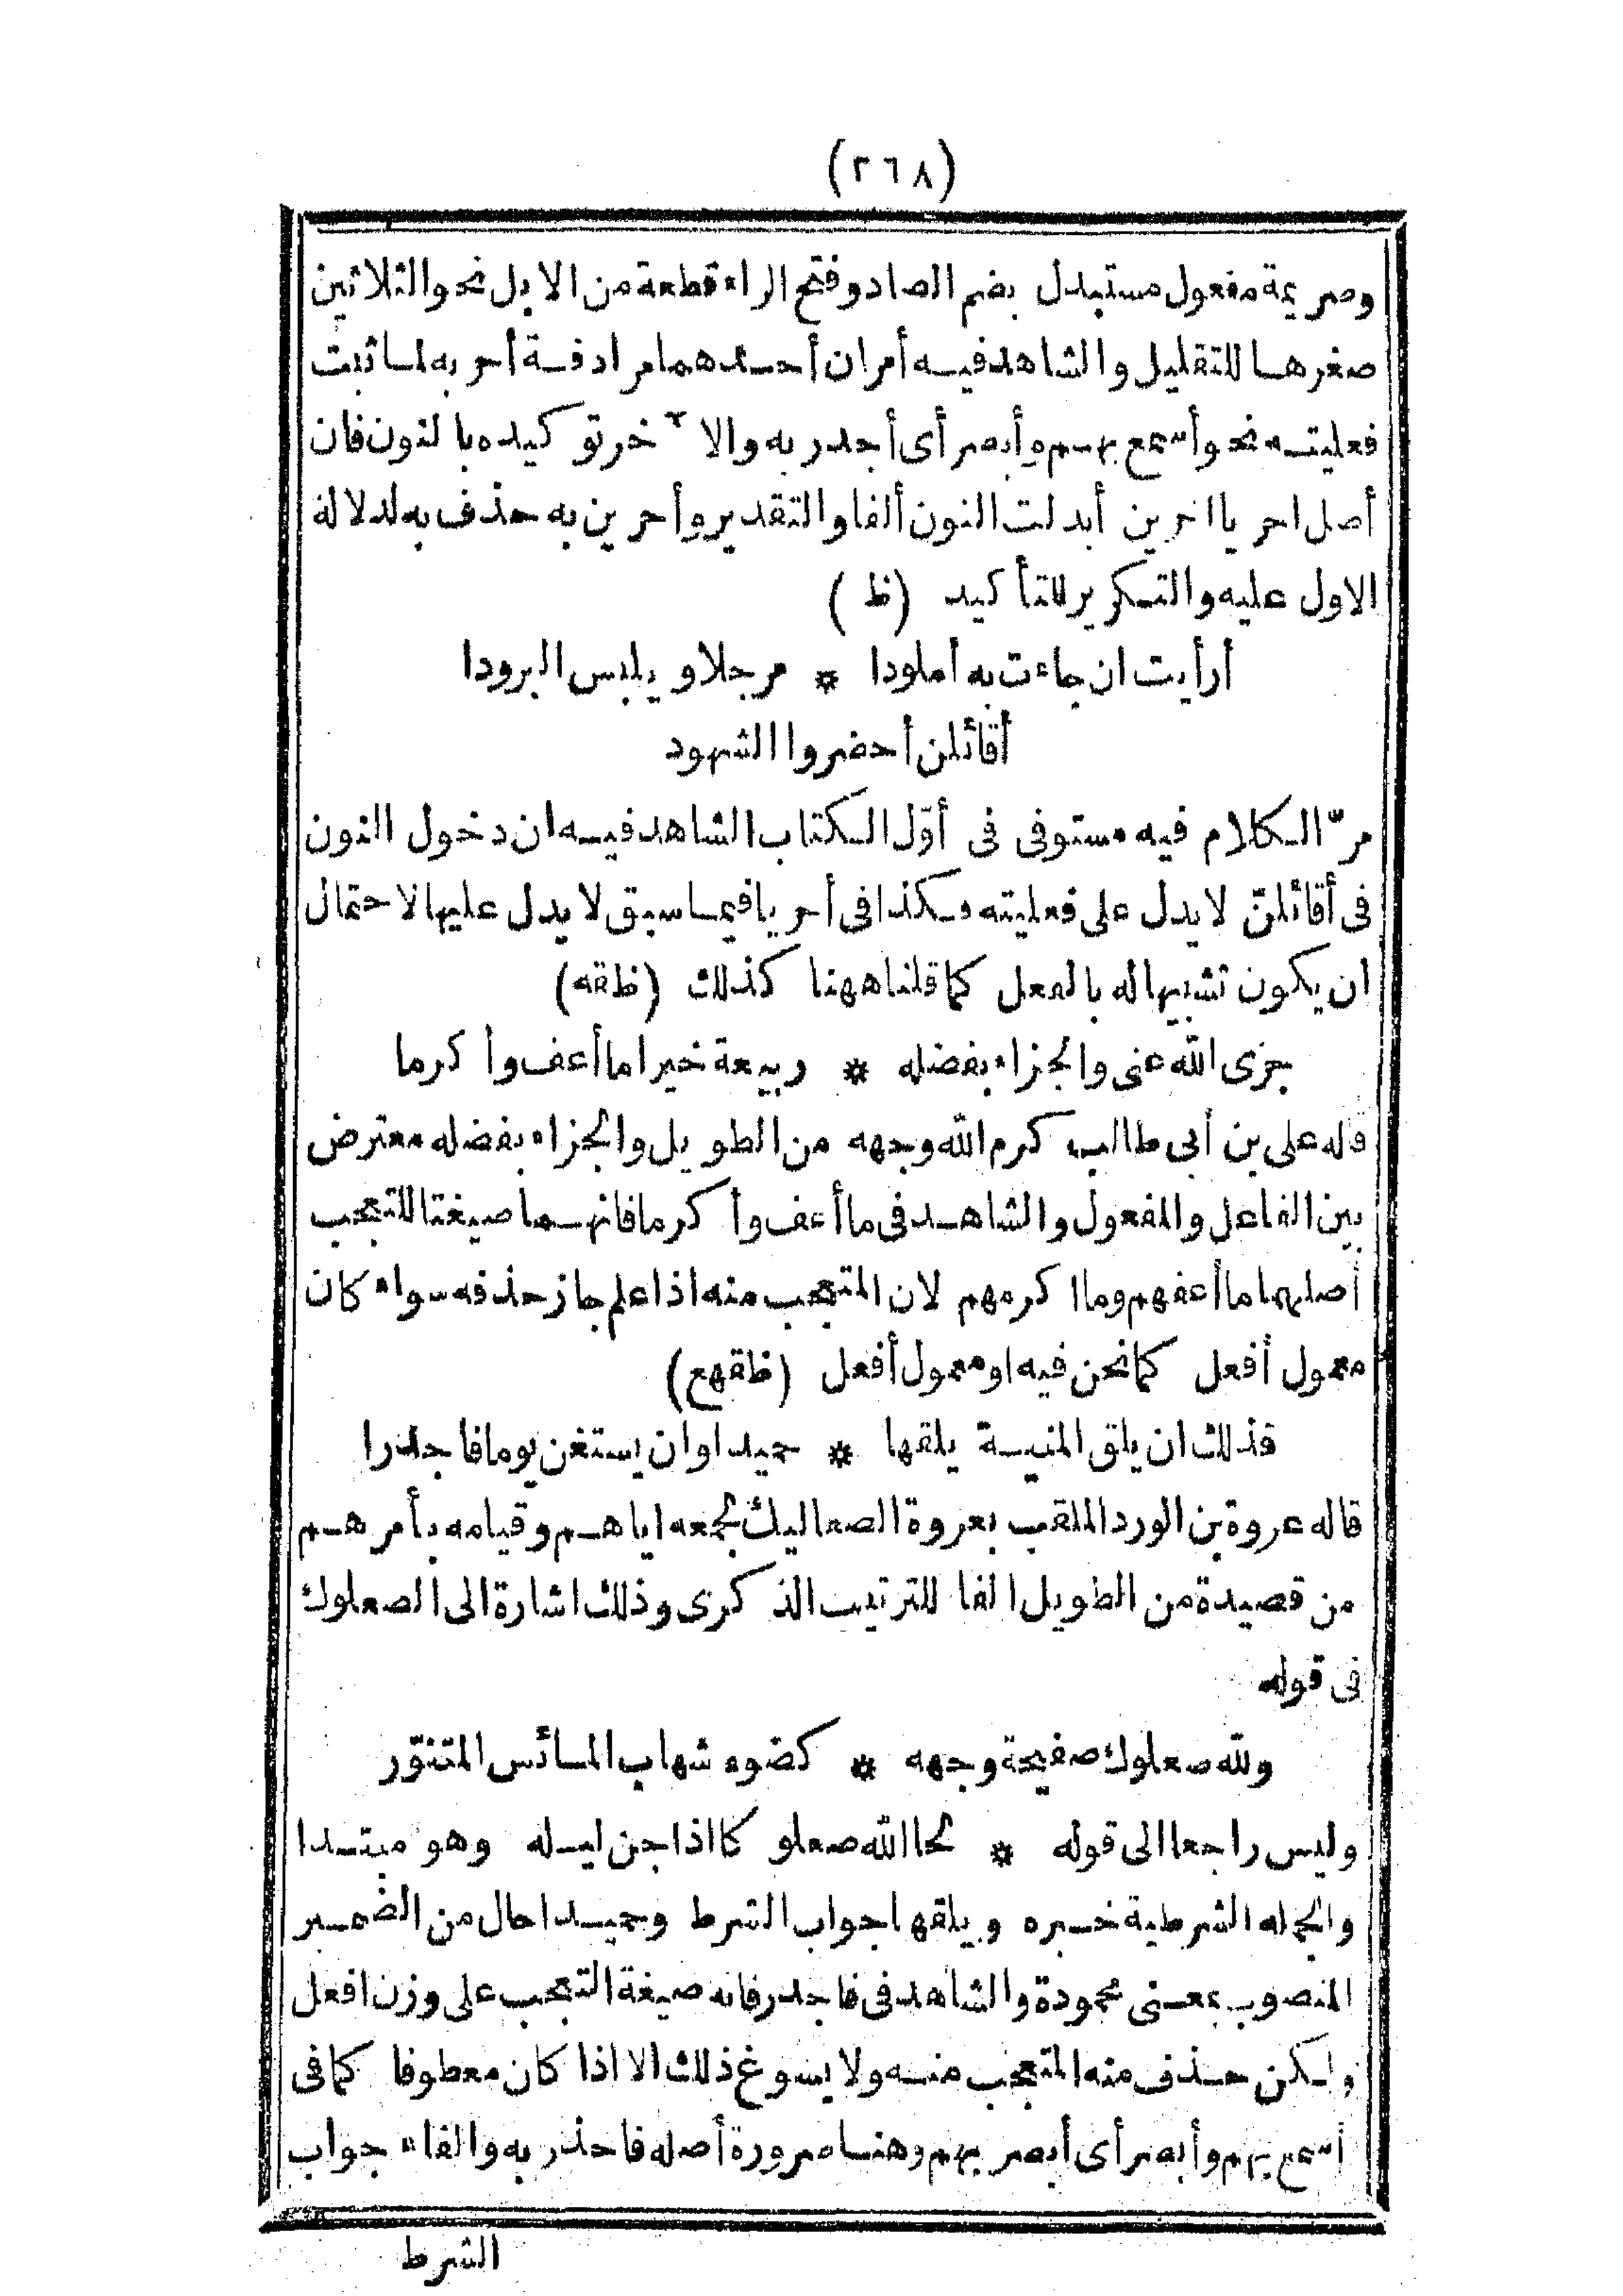 (٢٦٨)
وصريمة مفعول مستبدل بضم الصاد وفتح الراء قطعة من الابل نحو الثلاثين
صغرها للتقليل والشاهد فيه أمران أحدهما مرادفة أحر به لما ثبت
فعليته نحو أسمع بهم وأبصر أى أجدر به والآخر توكيده بالنون فان
أصل احر يا احرين أبدلت النون ألفا والتقدير وأحرين به حذف به لدلالة
الاول عليه والتكرير للتأكيد (ظ)
أرأيت ان جاءت به أملودا * مرجلا ويلبس البرودا
أقائلن أحضروا الشهود
مرّ الكلام فيه مستوفى فى أوّل الكتاب الشاهد فيه ان دخول النون
فى أقائلنّ لا يدل على فعليته وكذا فى أحر يا فيما سبق لا يدل عليها لاحتمال
ان يكون تشبيها له بالفعل كما قلنا ههنا كذلك (ظقه)
جزى الله عنى والجزاء بفضله * ربيعة خيرا ما أعف وأكرما
قاله على بن أبى طالب كرم الله وجهه من الطويل والجزاء بفضله معترض
بين الفاعل والمفعول والشاهد فى ما أعف وأكرما فانهما صيغتا للتعجب
أصلهما ما أعفهم وما اكرمهم لان المتعجب منه اذا علم جاز حذفه سواء كان
معمول أفعل كما نحن فيه او معمول أفعل (ظقهع)
فذلك ان يلق المنية يلقها * حميدا وان يستغن يوما فاجدرا
قاله عروة بن الورد الملقب بعروة الصعاليك لجمعه اياهم وقيامه بأمرهم
من قصيدة من الطويل الفا للترتيب الذكرى وذلك اشارة الى الصعلوك
فى قوله
ولله صعلوك صفيحة وجهه * كضوء شهاب المائس المتنوّر
وليس راجعا الى قوله * لحا الله صعلوكا اذا جن ليله وهو مبتدا
والجمله الشرطية خبره ويلقها جواب الشرط وحميدا حال من الضمير
المنصوب بمعنى محمودة والشاهد فى فاجدر فانه صيغة التعجب على وزن افعل
ولكن حذف منه المتعجب منه ولا يسوغ ذلك الا اذا كان معطوفا كما فى
أسمع بهم وأبصر أى أبصر بهم وهنا ضرورة أصله فاحذر به والفاء جواب
الشرط